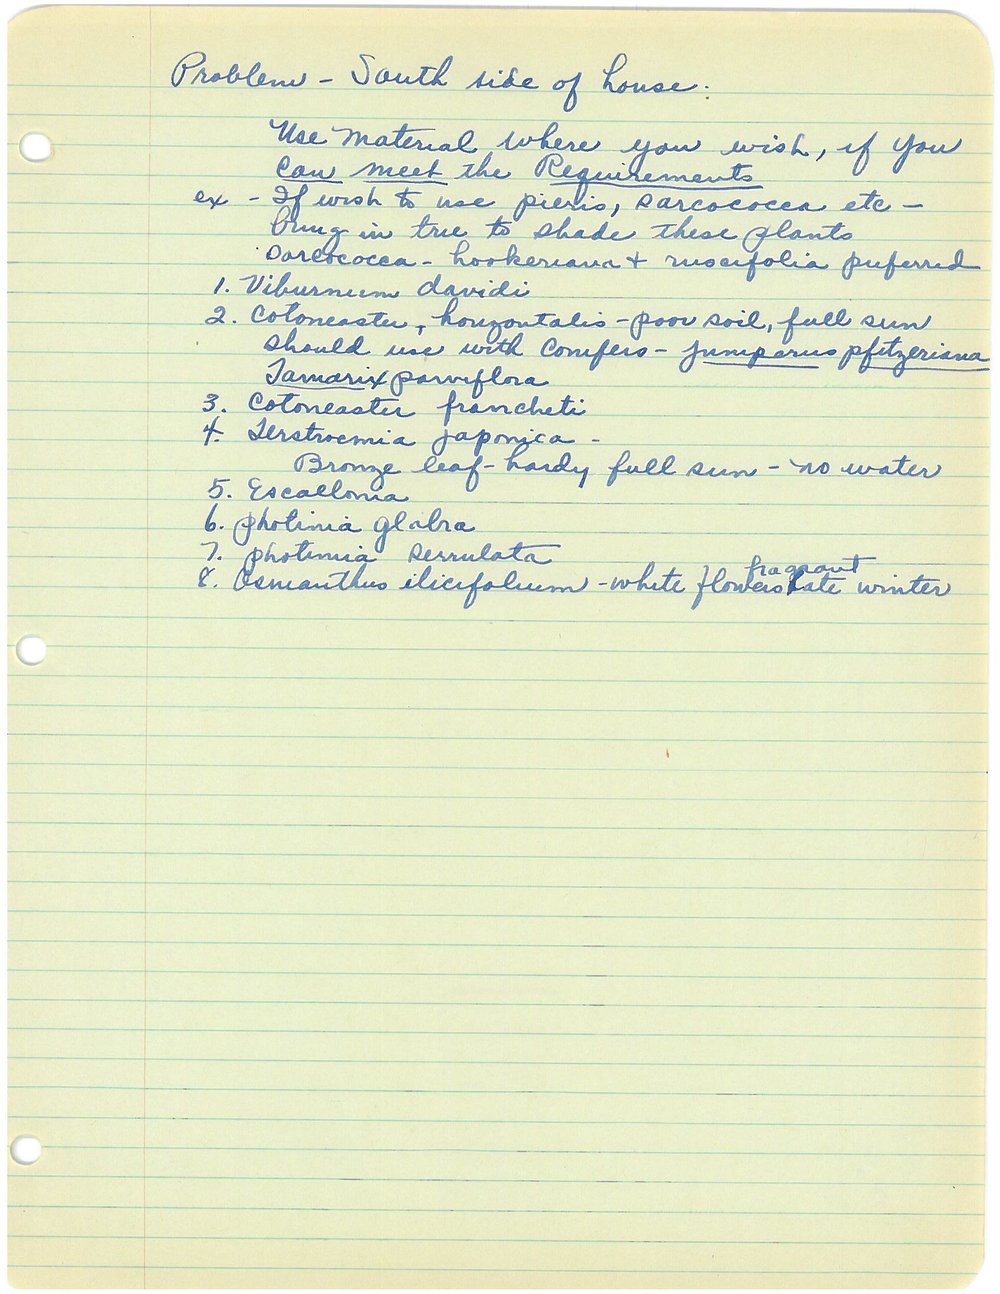 Problem - South side of house.
Use material where you wish, if you
can meet the Requirements
ex - If wish to use pieris, sarcococca etc -
bring in tree to shade these plants
Sarcococca - hookeriana + ruscifolia preferred
1. Viburnum davidi
2. Cotoneaster, horizontalis - poor soil, full sun
should use with Conifers - Juniperus pfitzeriana
Tamarix parviflora
3. Cotoneaster francheti
4. Terstroemia japonica -
Bronze leaf - hardy full sun - no water
5. Escallonia
6. photinia glabra
7. photinia serrulata
8. Osmanthus ilicifolium - white flowers fragrant late winter